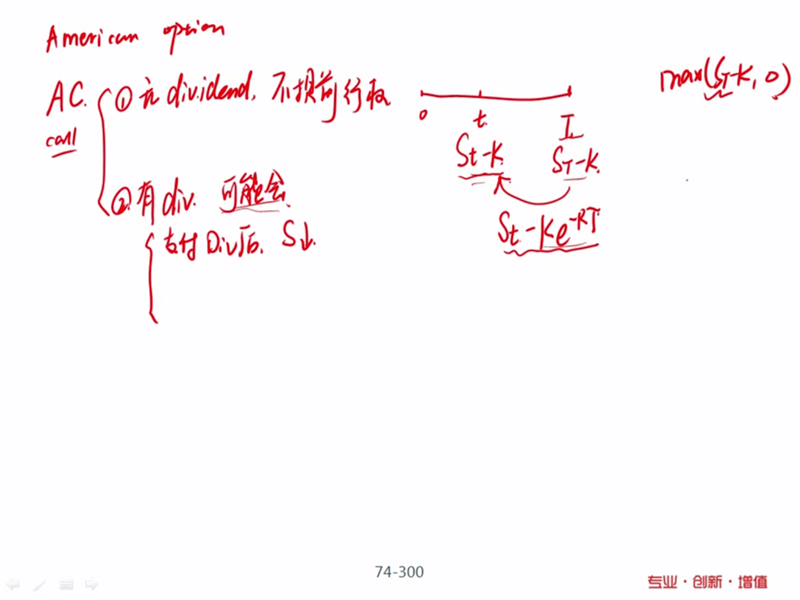 American option
AC. ① 无 dividend, 不提前行权
call
② 有 div. 可能会.
支付 Div后. S↓.
0 t. T
St-K ST-K
St-Ke^-RT
max(ST-K, 0)
74-300
专业·创新·增值